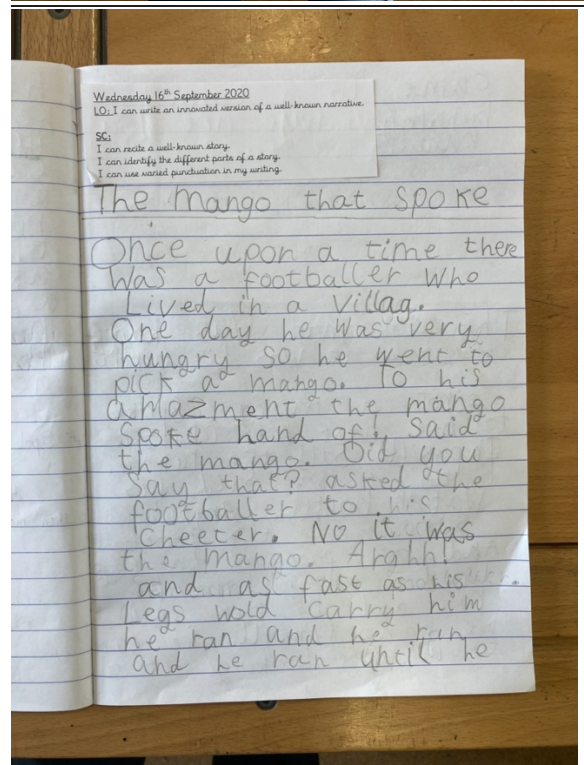 Wednesday 16th September 2020
LO: I can write an innovated version of a well-known narrative.
SC:
I can recite a well-known story.
I can identify the different parts of a story.
I can use varied punctuation in my writing.
The mango that spoke
Once upon a time there
was a footballer who
Lived in a villag.
One day he was very
hungry so he went to
pick a mango. To his
amazment the mango
spoke hand of! said
the mango. Did you
say that? asked the
footballer to his
cheeter. No it was
the mango. Arghh!
and as fast as his
Legs wold carry him
he ran and he ran
and he ran until he